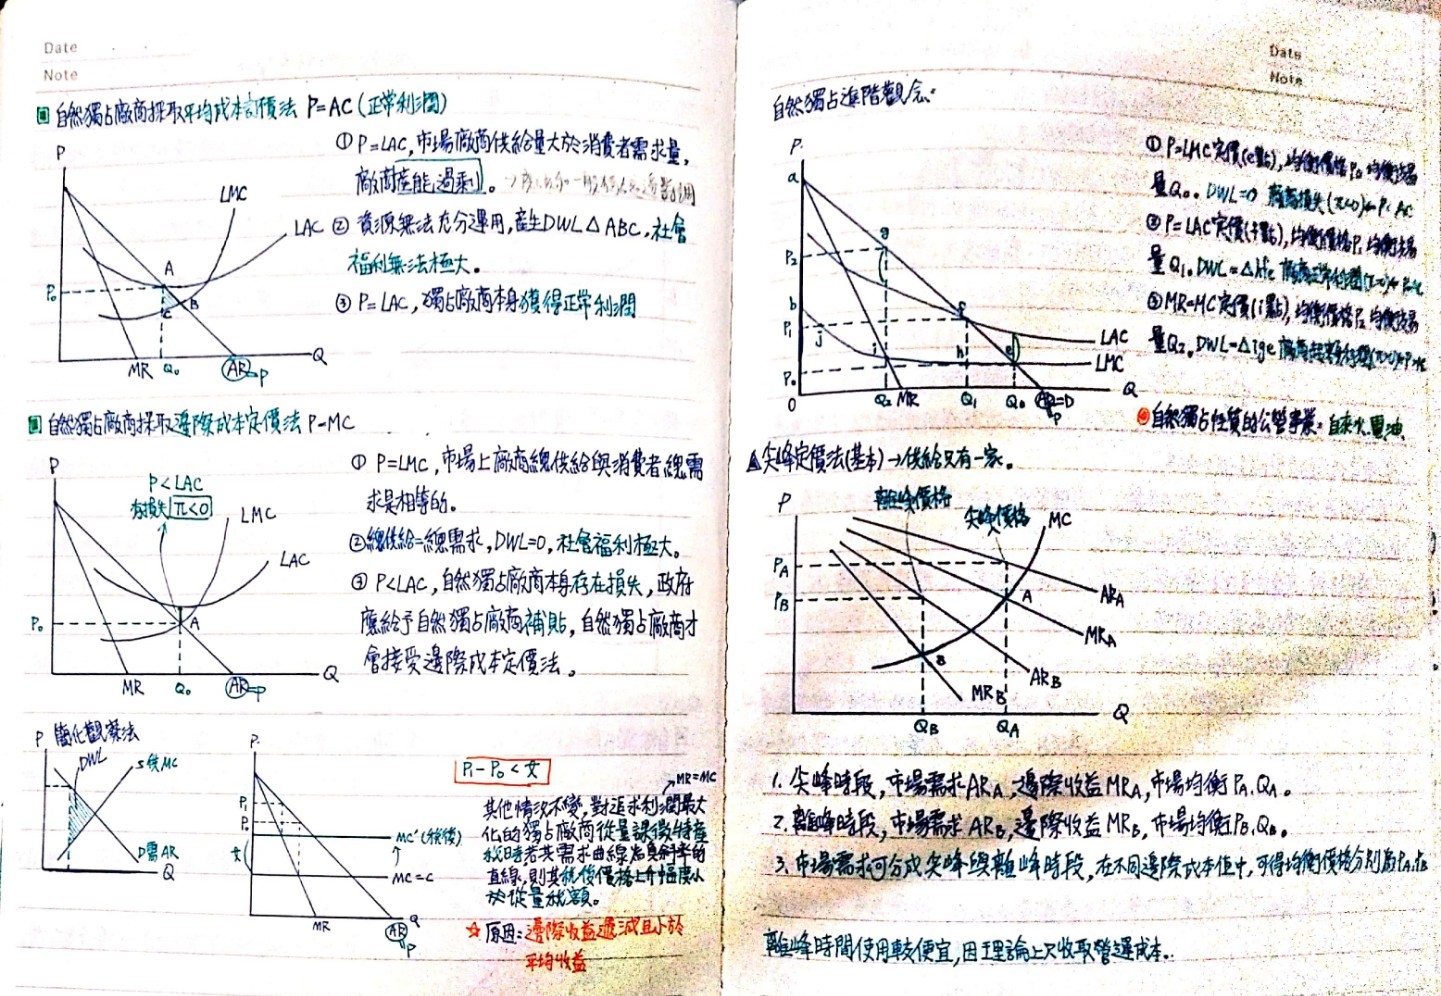 Date
Note
自然獨占廠商採取平均成本訂價法 P=AC (正常利潤)
① P=LAC,市場廠商供給量大於消費者需求量,
廠商產能過剩。
② 資源無法充分運用,產生DWL△ABC,社會
福利無法極大。
③ P=LAC,獨占廠商本身獲得正常利潤
P
LMC
LAC
A
B
C
P₀
MR
Q₀
AR=P
Q
自然獨占廠商採取邊際成本定價法 P=MC
① P=LMC,市場上廠商總供給與消費者總需
求是相等的。
②總供給=總需求,DWL=0,社會福利極大。
③ P<LAC,自然獨占廠商本身存在損失,政府
應給予自然獨占廠商補貼,自然獨占廠商才
會接受邊際成本定價法。
P
P<LAC
有損失 π<0
LMC
LAC
A
P₀
MR
Q₀
AR=P
Q
簡化觀察法
P
DWL
S供MC
D需AR
Q
P
P₁
P₀
MC'(稅後)
MC=C
MR
AR=P
Q
P₁-P₀<t
MR=MC
其他情況不變,對追求利潤最大
化的獨占廠商從量課徵特產
稅時若其需求曲線為負斜率的
直線,則其稅後價格上升幅度小
於從量稅額。
☆原因:邊際收益遞減且小於
平均收益
Date
Note
自然獨占進階觀念:
P
a
g
P₂
b
P₁
j
f
i
h
e
P₀
LAC
LMC
0
Q₂
MR
Q₁
Q₀
AR=D
P
Q
① P=LMC定價(e點),均衡價格P₀ 均衡交易
量Q₀。DWL=0 廠商損失(π<0)← P<AC
② P=LAC定價(f點),均衡價格P₁ 均衡交易
量Q₁。DWL=△hfe 廠商正常利潤(π=0)←
③ MR=MC定價(i點),均衡價格P₂ 均衡交易
量Q₂。DWL=△ige 廠商超額利潤
自然獨占性質的公營事業:自來水、電、油
▲尖峰定價法(基本)→供給只有一家。
P
離峰價格
尖峰價格
MC
PA
PB
A
B
ARA
MRA
ARB
MRB
QB
QA
Q
1. 尖峰時段,市場需求ARA,邊際收益MRA,市場均衡PA.QA。
2. 離峰時段,市場需求ARB,邊際收益MRB,市場均衡PB.QB。
3. 市場需求可分成尖峰與離峰時段,在不同邊際成本值中,可得均衡價格分別為PA.PB
離峰時間使用較便宜,因理論上只收取營運成本。